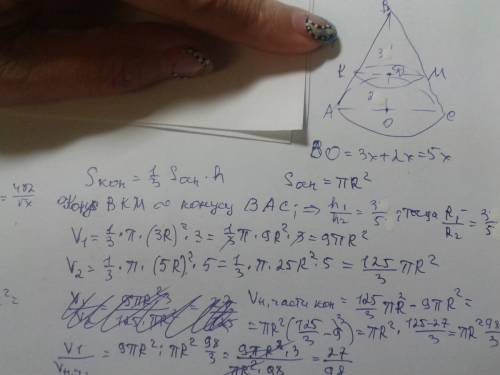 B
3
K
M
2
A
O
C
BO = 3x + 2x = 5x
Sкон = 1/3 Sосн · h
Sосн = πR²
= 4π2/√x
ВКМ ∞ конусу ВАС; ⇒ h₁/h₂ = 3/5; тогда R₁/R₂ = 3/5
V₁ = 1/3 · π · (3R)² · 3 = 1/3 π · 9R² · 3 = 9πR²
V₂ = 1/3 · π · (5R)² · 5 = 1/3 · π · 25R² · 5 = 125/3 πR²
Vн. части кон = 125/3 πR² - 9πR² =
= πR² (125/3 - 9) = πR² · 125-27/3 = πR² 98/3
V₁/Vн.ч. = 9πR² : πR² 98/3 = 9πR² · 3/πR² · 98 = 27/98